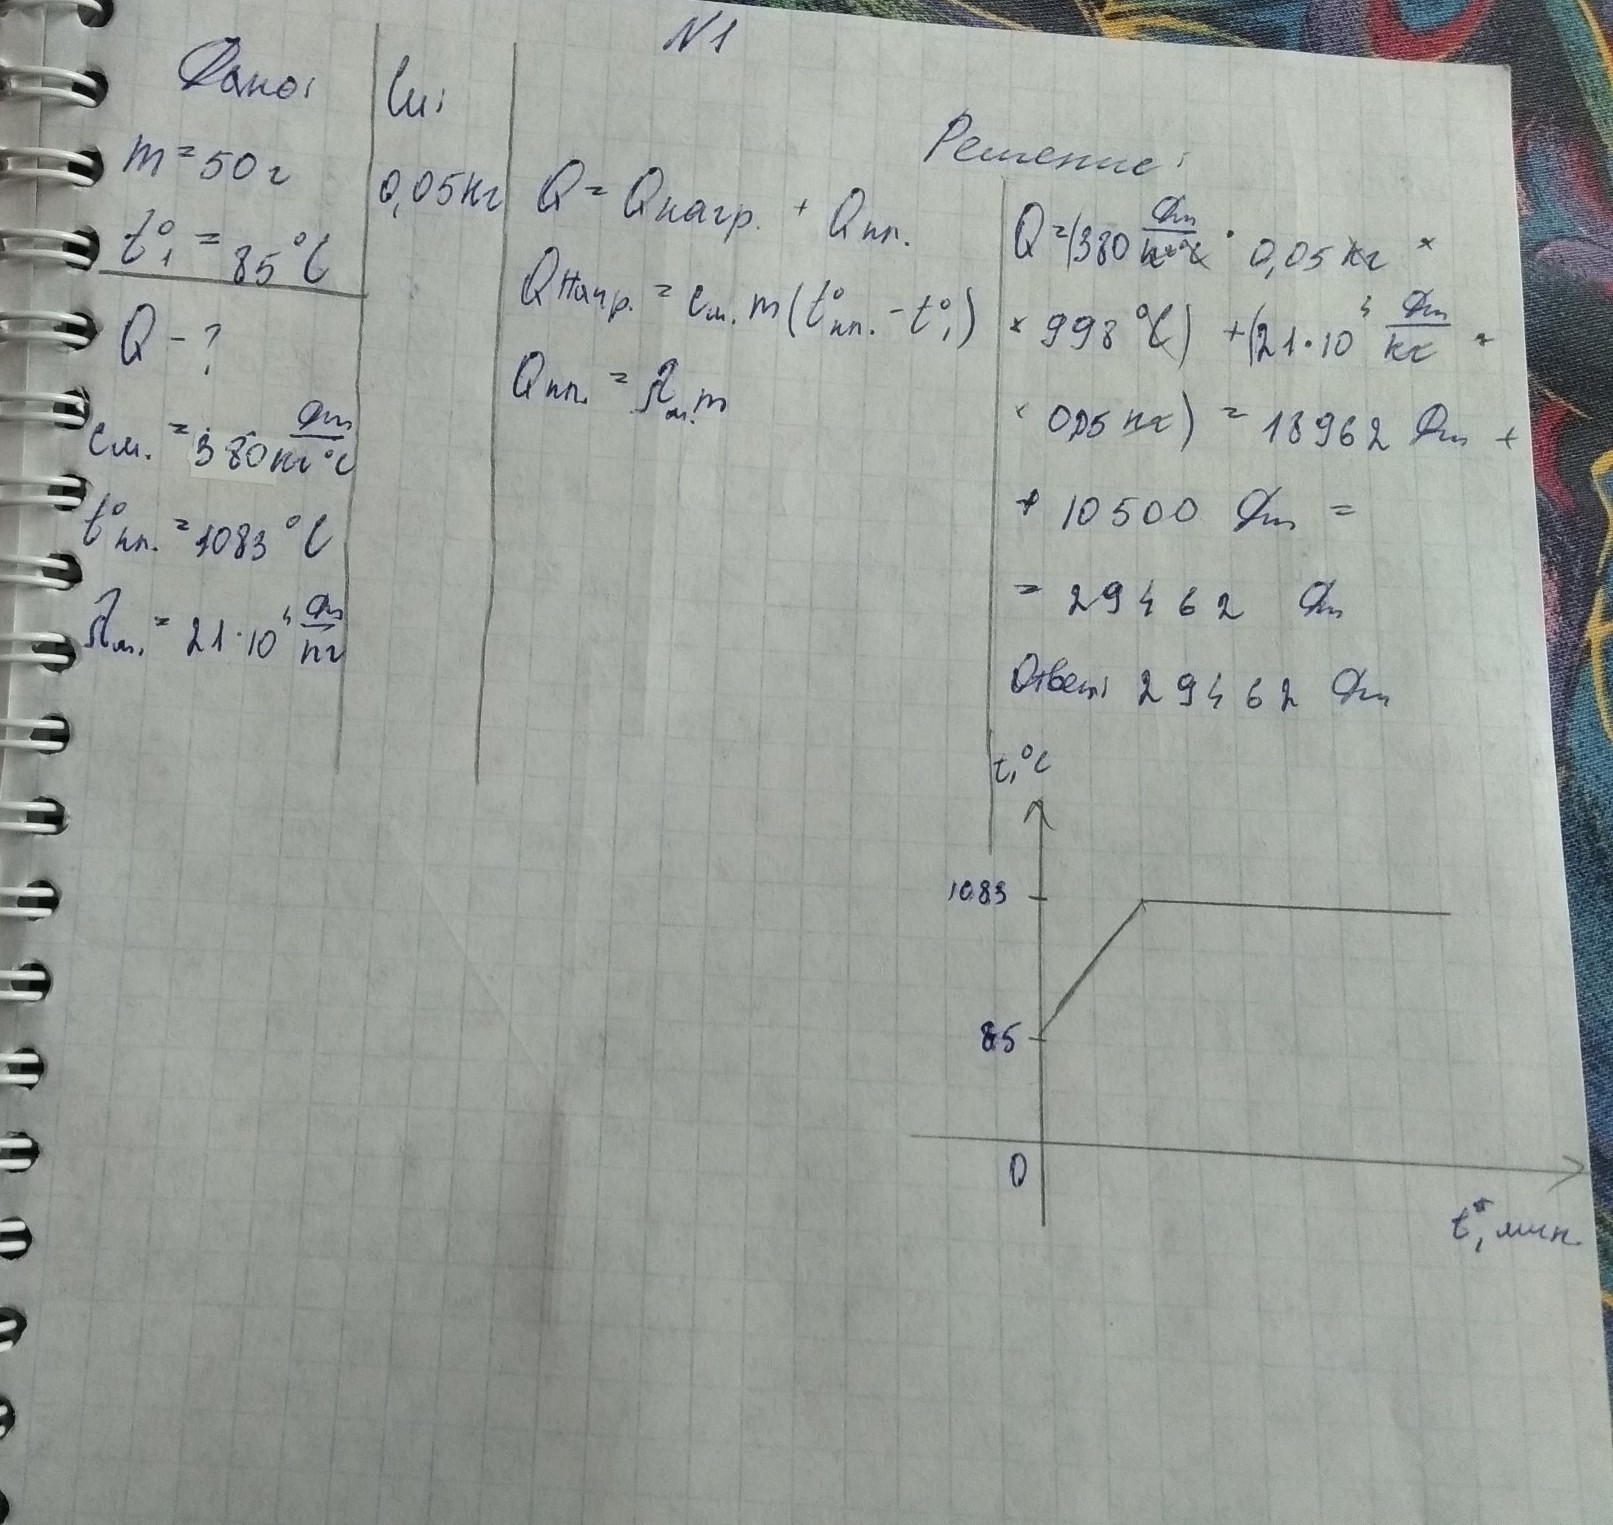 N1
Дано:
m = 50 г
t°₁ = 85 °C
Q - ?
cм. = 380 Дж/кг°C
t°пл. = 1083 °C
λм. = 21·10⁴ Дж/кг
Си:
0,05 кг
Решение:
Q = Qнагр. + Qпл.
Qнагр. = cм. m (t°пл. - t°₁)
Qпл. = λм. m
Q = (380 Дж/кг·°C · 0,05 кг ×
× 998 °C) + (21·10⁴ Дж/кг ×
× 0,05 кг) = 18962 Дж +
+ 10500 Дж =
= 29462 Дж
Ответ: 29462 Дж
t, °C
1083
85
0
t, мин.